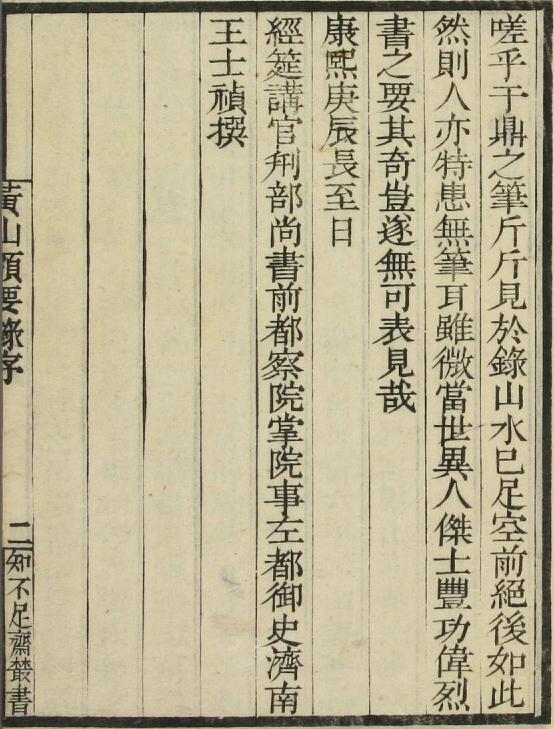 嗟乎于鼎之筆斤斤見於錄山水已足空前絕後如此
然則人亦特患無筆耳雖微當世異人傑士豐功偉烈
書之要其奇豈遂無可表見哉
康熙庚辰長至日
經筵講官刑部尚書前都察院掌院事左都御史濟南
王士禎撰
黃山領要錄序
二
知不足齋叢書